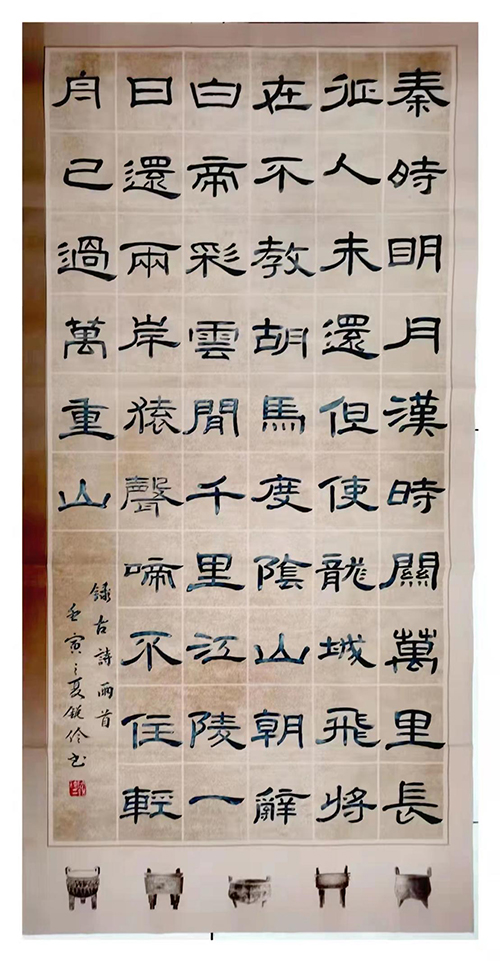 秦時明月漢時關萬里長
征人未還但使龍城飛將
在不教胡馬度陰山朝辭
白帝彩雲間千里江陵一
日還兩岸猿聲啼不住輕
舟已過萬重山
錄古詩兩首
壬寅之夏銳伶书